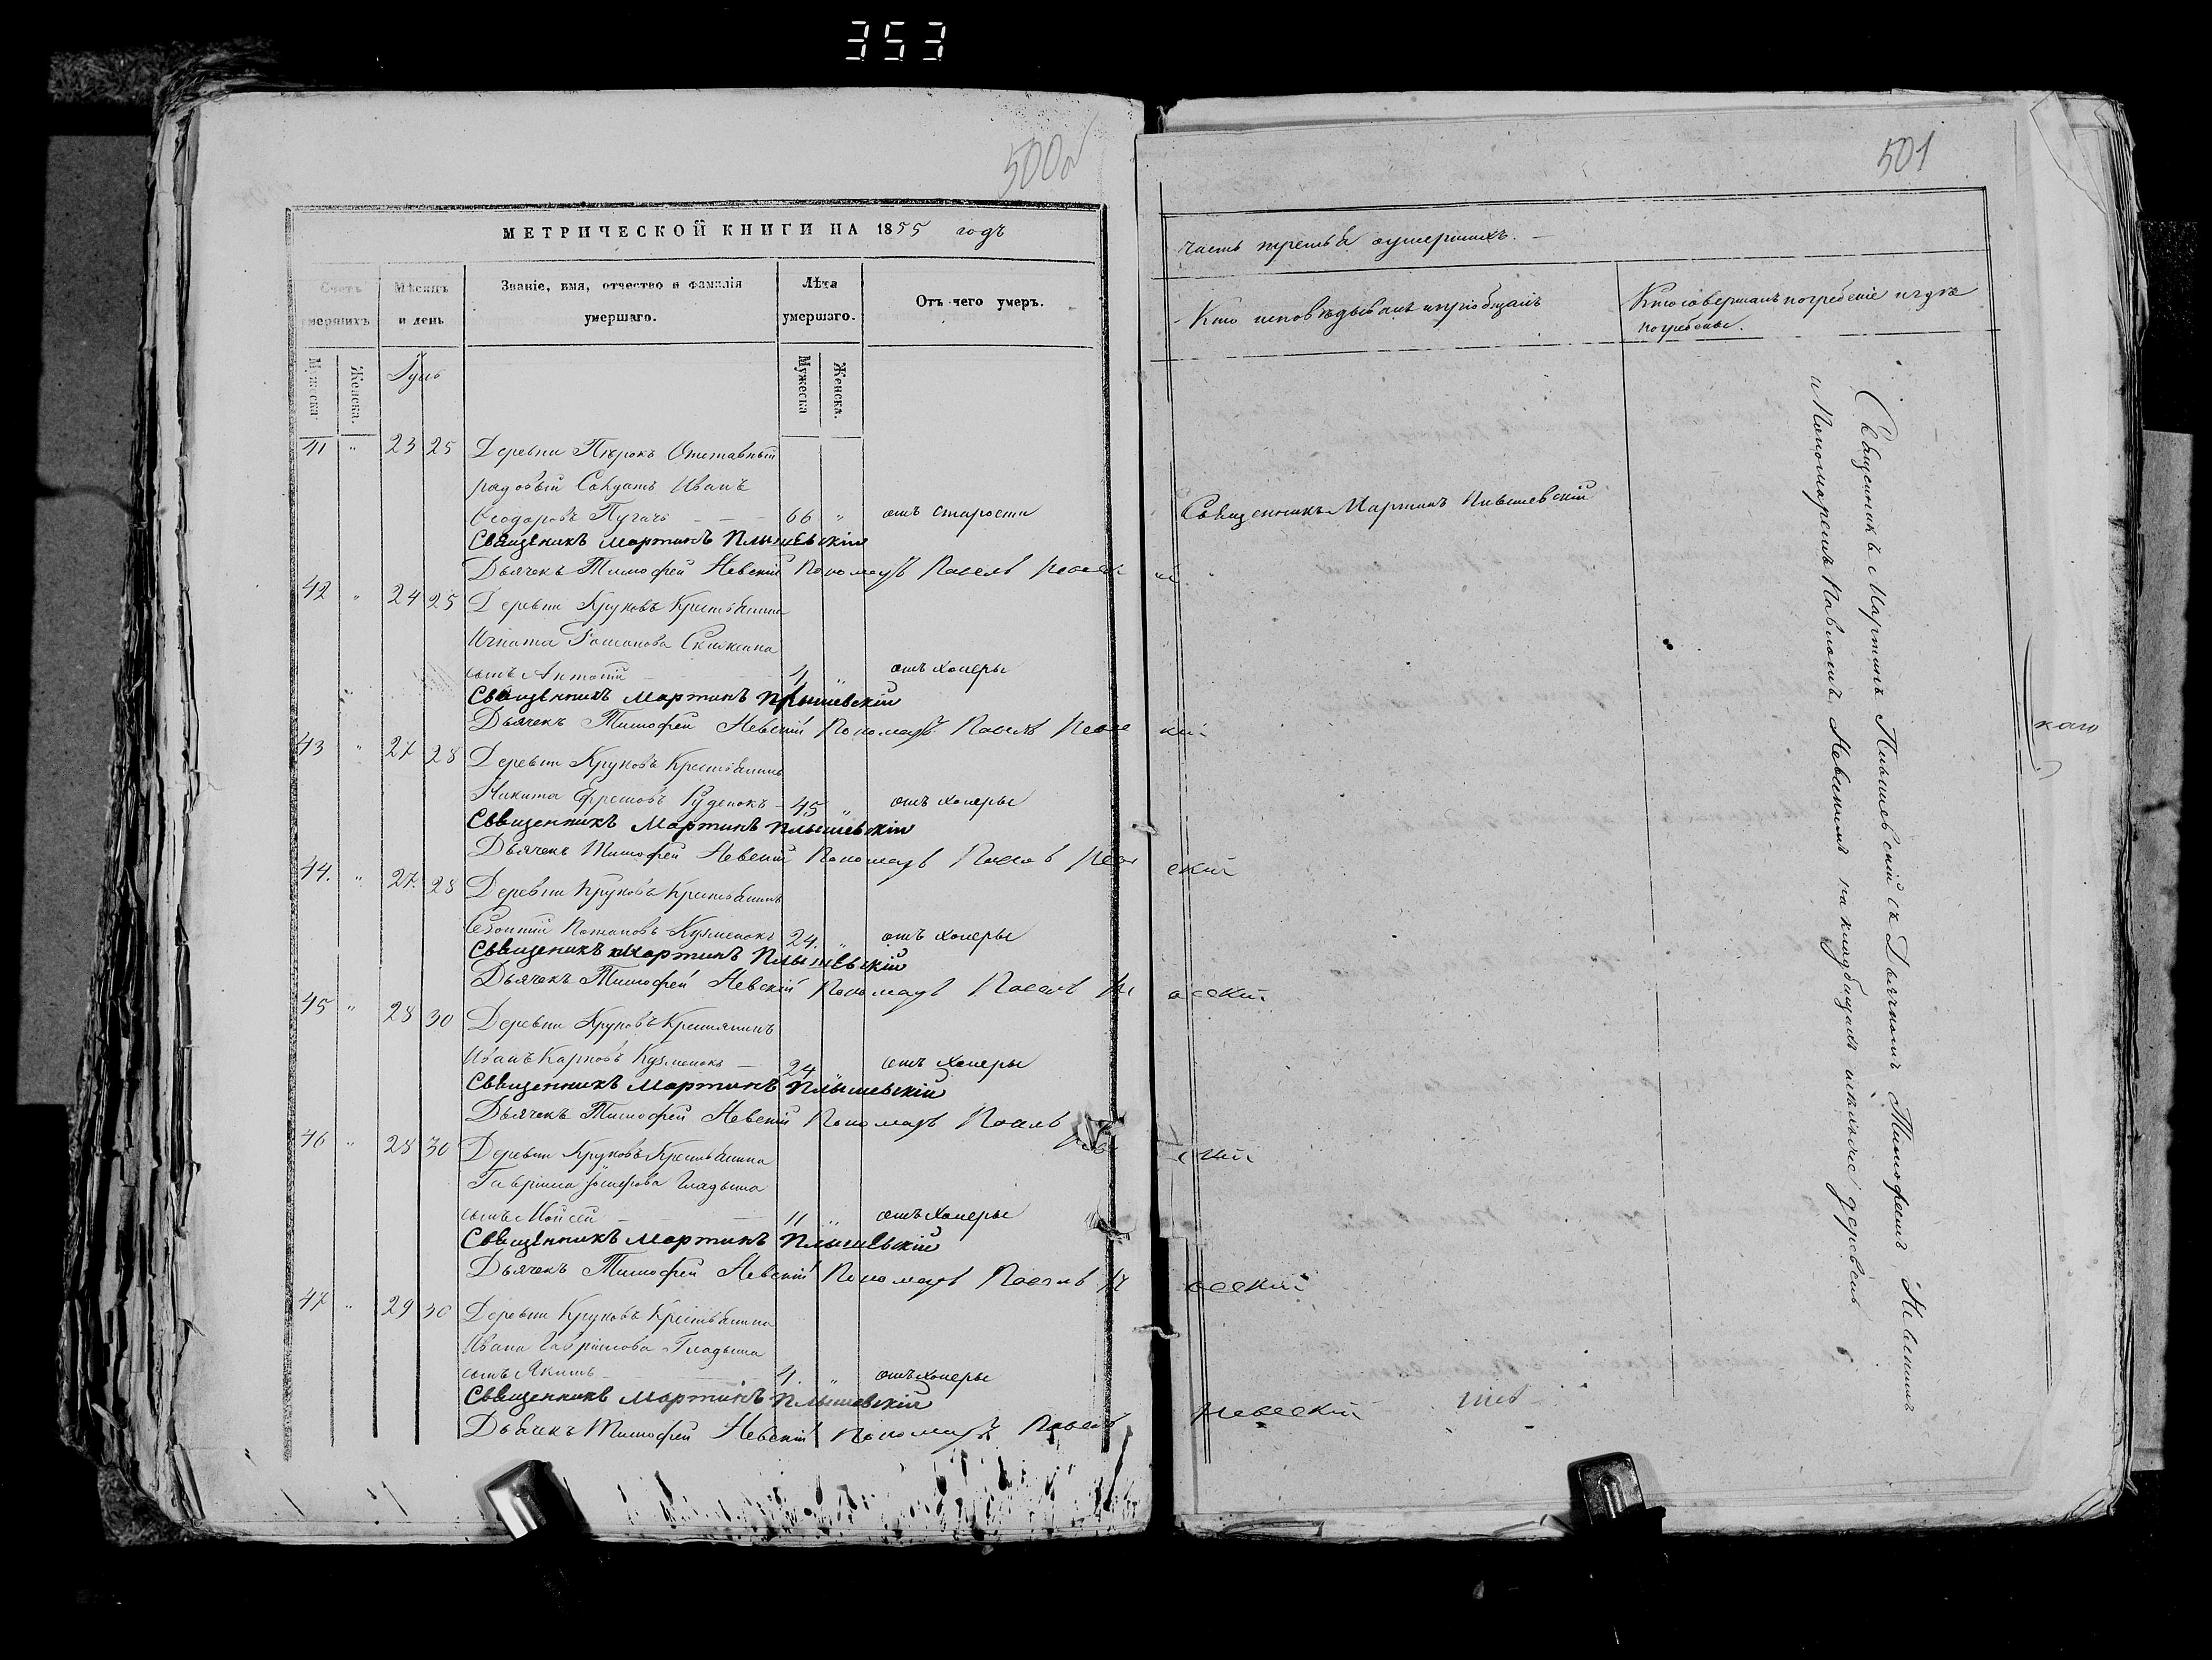 353
500об
МЕТРИЧЕСКОЙ КНИГИ НА 1855 годъ
Счетъ умершихъ
Мѣсяцъ и день
Званіе, имя, отчество и фамилія умершаго.
Лѣта умершаго.
Отъ чего умеръ.
Мужеска
Женска.
Мужеска
Женска.
41 " 23 25 Деревни Отставный
рядовый Солдатъ Иванъ
Ѳеодоровъ Пугачъ 66 " отъ старости
Священикъ Мартинъ Плышевскій
Дьячекъ Тимофей Невскій Пономарь Павелъ Невскій
42 " 24 25 Деревни Круковъ Крестьянина
Игната
сынъ Антоній 4 " отъ холеры
Священникъ Мартинъ Плышевскій
Дьячекъ Тимофей Невскій Пономарь Павелъ Невскій
43 " 27 28 Деревни Круковъ Крестьянинъ
Никита Ефремовъ Руденокъ 45 " отъ холеры
Священникъ Мартинъ Плышевскій
Дьячекъ Тимофей Невскій Пономарь Павелъ Невскій
44. " 27. 28 Деревни Круковъ Крестьянинъ
Потаповъ Кузменокъ 24. " отъ холеры
Священикъ Мартинъ Плышевскій
Дьячекъ Тимофей Невскій Пономарь Павелъ Невскій
45 " 28 30 Деревни Круковъ Крестьянинъ
Иванъ Карповъ Кузменокъ 24 " отъ холеры
Священникъ Мартинъ Плышевскій
Дьячекъ Тимофей Невскій Пономарь Павелъ Невскій
46 " 28 30 Деревни Круковъ Крестьянина
Гавріила Іосифова Гладыша
сынъ Моисей 11 " отъ холеры
Священникъ Мартинъ Плышевскій
Дьячекъ Тимофей Невскій Пономарь Павелъ Невскій
47 " 29 30 Деревни Круковъ Крестьянина
Ивана Гавріилова Гладыша
сынъ Якимъ 4. " отъ холеры
Священникъ Мартинъ Плышевскій
Дьячекъ Тимофей Невскій Пономарь Павелъ Невескій
501
часть третья оумершихъ.
Кто исповѣдывалъ и пріобщалъ
Кто совершалъ погребеніе и гдѣ
погребены.
Священникъ Мартинъ Плышевскій
Священникъ Мартинъ Плышевскій съ Дьячкомъ Тимофеемъ Невскимъ
и Пономаремъ Павломъ Невскимъ на кладбищахъ деревень
каго